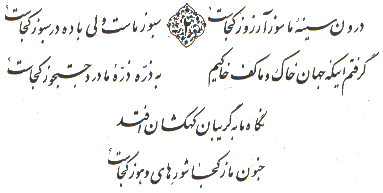 درون سینهٔ ما سوز آرزو ز کجاست؟ سبو ز ماست ولی باده در سبو ز کجاست؟
گرفتم اینکه جهان خاک و ما کف خاکیم به ذرّه ذرّهٔ ما درد جستجو ز کجاست؟
نگاه ما به گریبان کهکشان افتد
جنون ما ز کجا شور های و هو ز کجاست؟